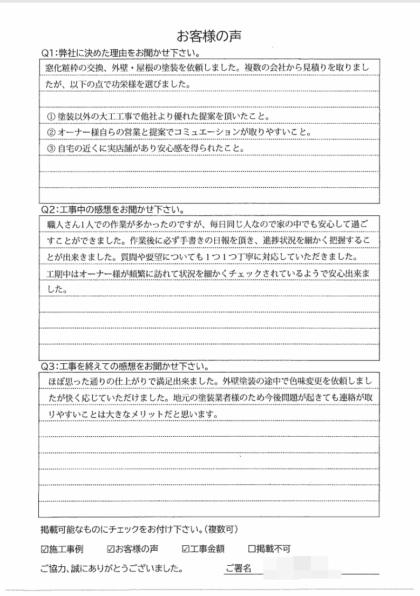 お客様の声
Q1:弊社に決めた理由をお聞かせ下さい。
窓化粧枠の交換、外壁・屋根の塗装を依頼しました。複数の会社から見積りを取りまし
たが、以下の点で功栄様を選びました。
① 塗装以外の大工工事で他社より優れた提案を頂いたこと。
② オーナー様自らの営業と提案でコミュエーションが取りやすいこと。
③ 自宅の近くに実店舗があり安心感を得られたこと。
Q2:工事中の感想をお聞かせ下さい。
職人さん1人での作業が多かったのですが、毎日同じ人なので家の中でも安心して過ご
すことができました。作業後に必ず手書きの日報を頂き、進捗状況を細かく把握するこ
とが出来きました。質問や要望についても1つ1つ丁寧に対応していただきました。
工期中はオーナー様が頻繁に訪れて状況を細かくチェックされているようで安心出来ま
した。
Q3:工事を終えての感想をお聞かせ下さい。
ほぼ思った通りの仕上がりで満足出来ました。外壁塗装の途中で色味変更を依頼しまし
たが快く応じていただけました。地元の塗装業者様のため今後問題が起きても連絡が取
りやすいことは大きなメリットだと思います。
掲載可能なものにチェックをお付け下さい。(複数可)
☑施工事例 ☑お客様の声 ☑工事金額 ☐掲載不可
ご協力、誠にありがとうございました。 ご署名